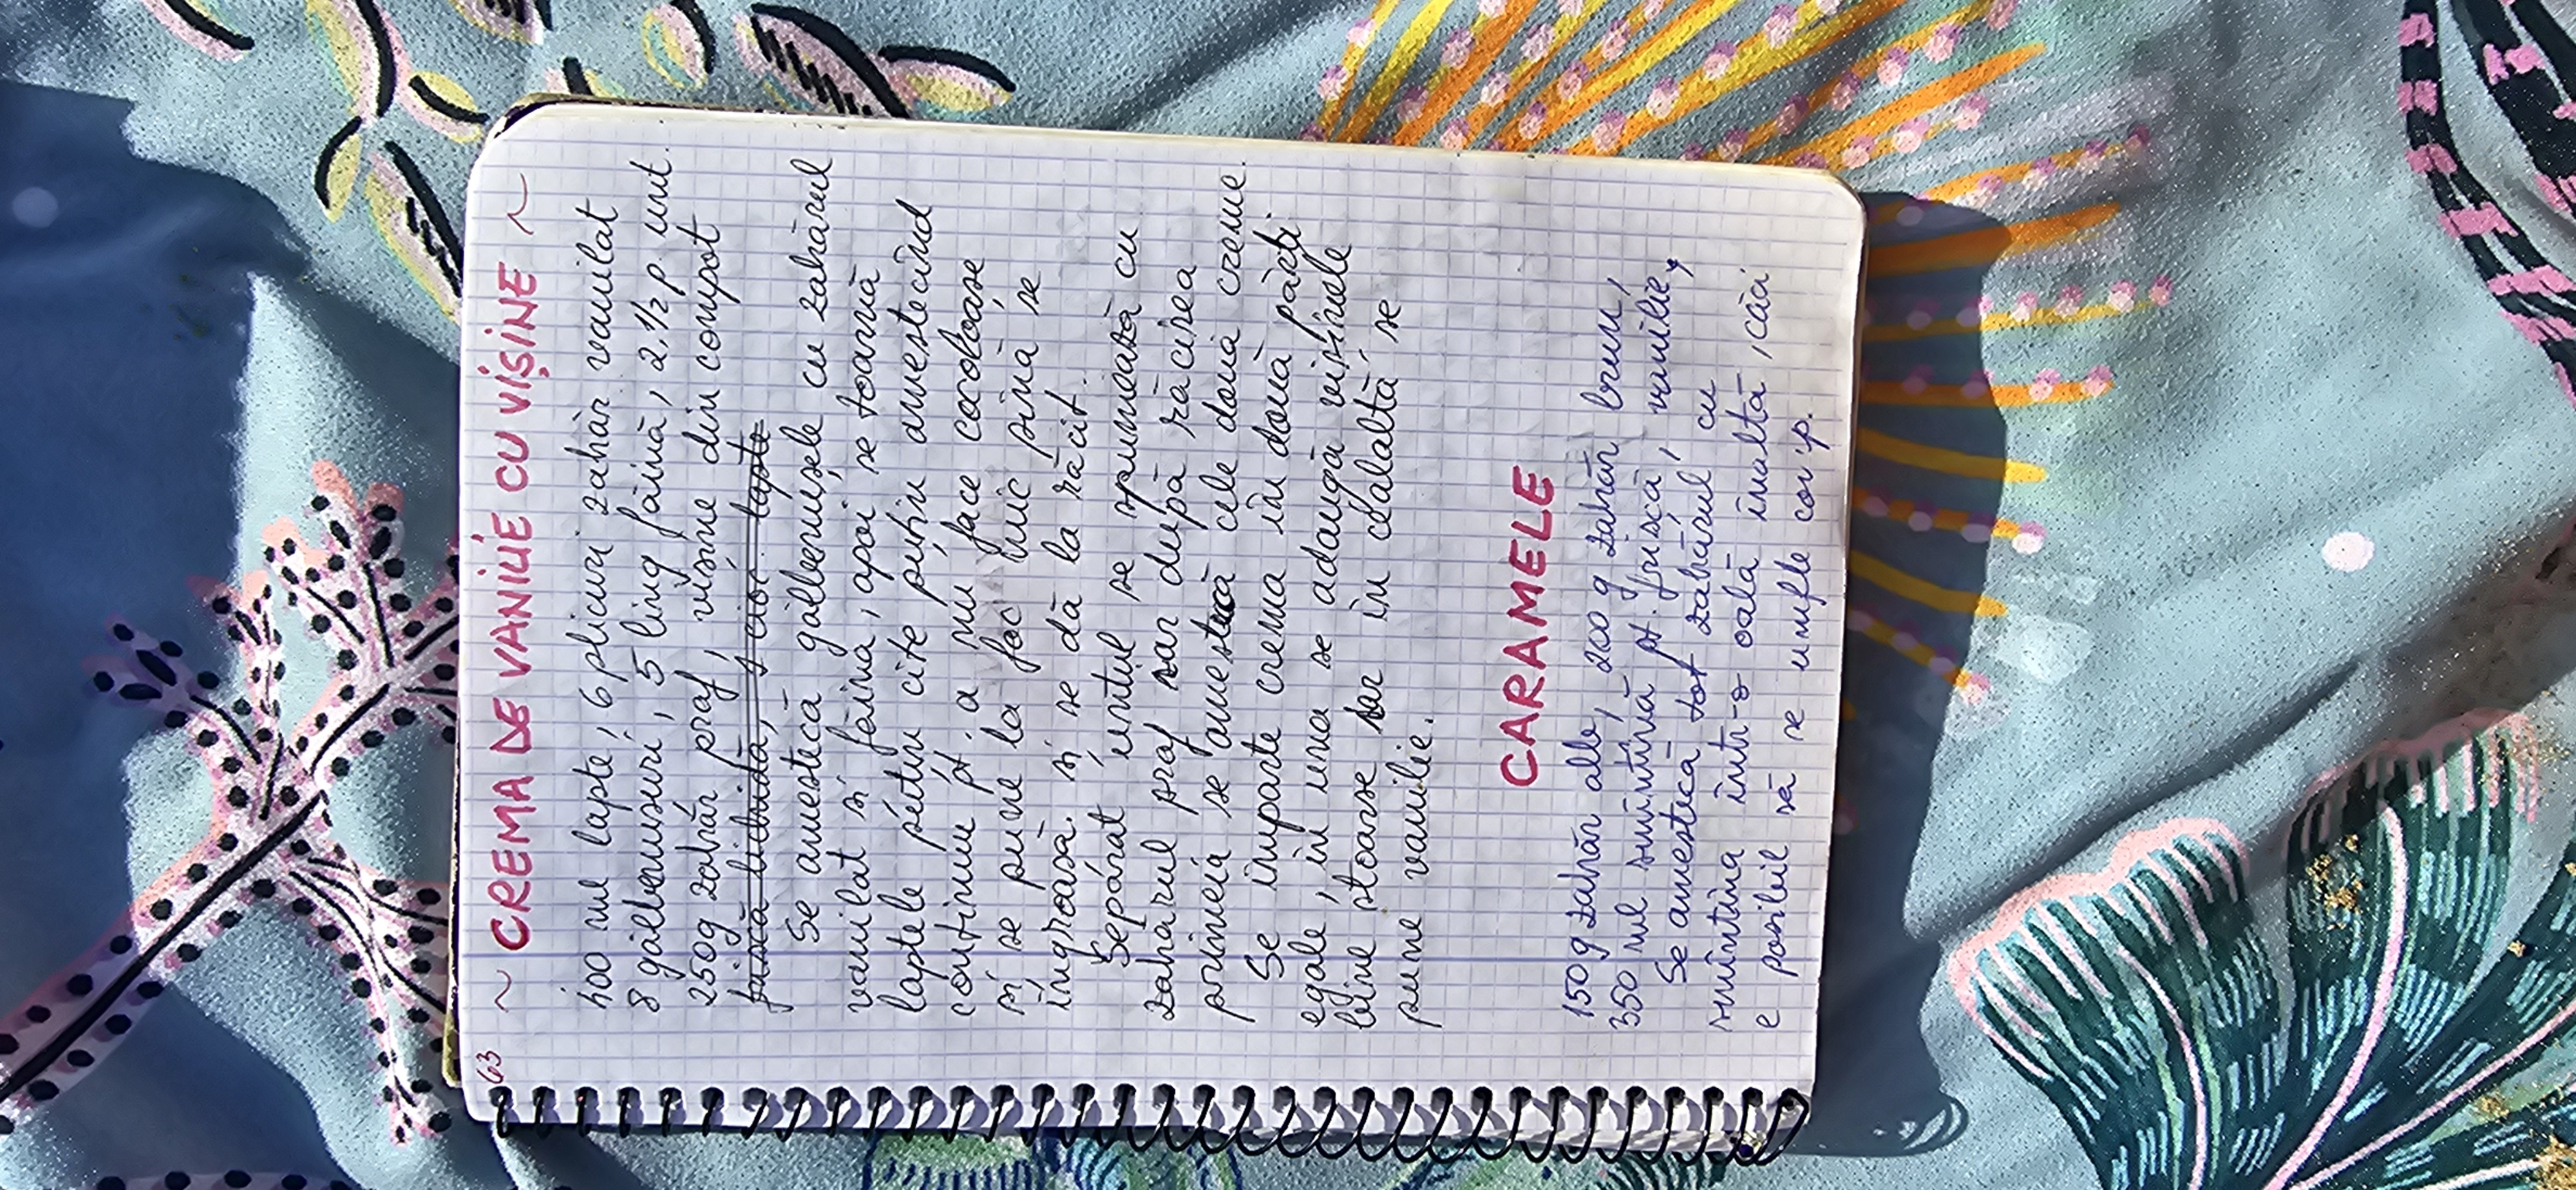 63
~ CREMA DE VANILIE CU VIȘINE ~
400 ml lapte, 6 plicuri zahăr vanilat
8 gălbenușuri, 5 ling făină, 2,1/2 p. unt.
250g zahăr praf, vișine din compot
frișcă lichidă, 1 cioc. lapte
Se amestecă gălbenușele cu zahărul
vanilat și făina, apoi se toarnă
laptele puțin cîte puțin amestecînd
continuu pt. a nu face cocoloașe
și se pune la foc mic pînă se
îngroașă. și se dă la răcit.
Separat untul se spumează cu
zahărul praf iar după răcirea
primeia se amestecă cele două creme.
Se împarte crema în două părți
egale, în una se adaugă vișinele
bine stoarse iar în cealaltă se
pune vanilie.
CARAMELE
150g zahăr alb, 200 g zahăr brun,
350 ml smîntînă pt. frișcă, vanilie,
Se amestecă tot zahărul cu
smîntîna într-o oală înaltă, căci
e posibil să se umfle comp.